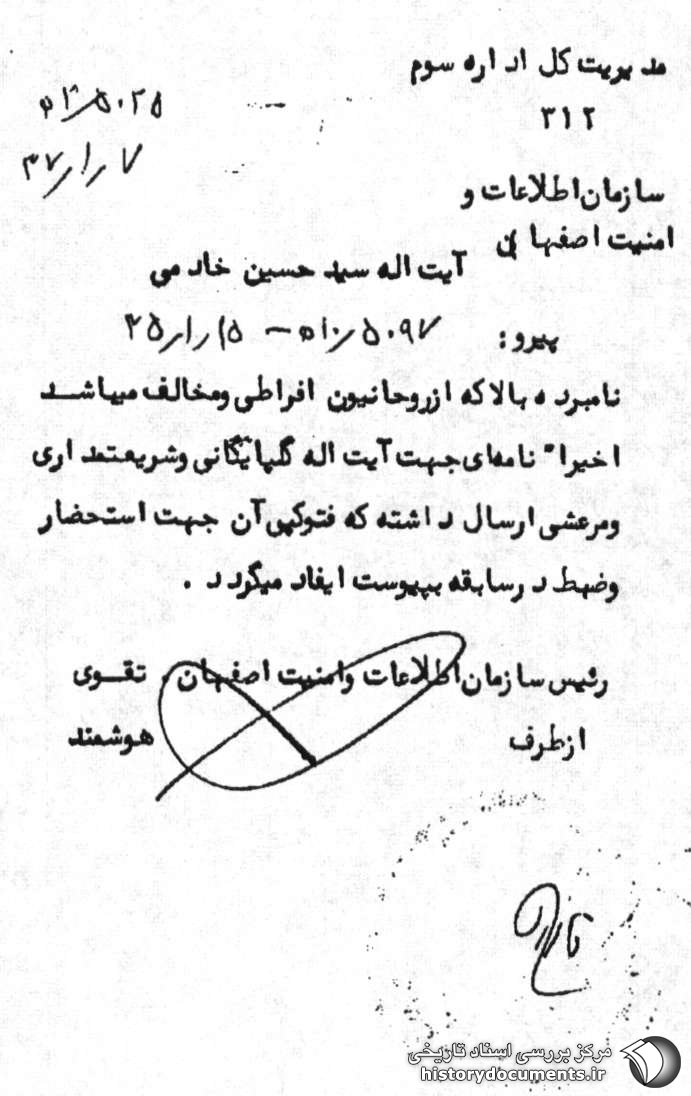 مدیریت کل اداره سوم
۳۱۲
۵۰۲۵/ ۱۰ه
۳۷/۱/۷
سازمان اطلاعات و
امنیت اصفهان
آیت اله سید حسین خادمی
پیرو: ۵۰۹۷/۱۰ه – ۳۵/۱/۱۵
نامبرده بالا که از روحانیون افراطی و مخالف میباشد
اخیرا" نامه‌ای جهت آیت اله گلپایگانی و شریعتمداری
و مرعشی ارسال داشته که فتوکپی آن جهت استحضار
و ضبط در سابقه بپیوست ایفاد میگردد.
رئیس سازمان اطلاعات و امنیت اصفهان. تقوی
از طرف هوشمند
مرکز بررسی اسناد تاریخی
historydocuments.ir